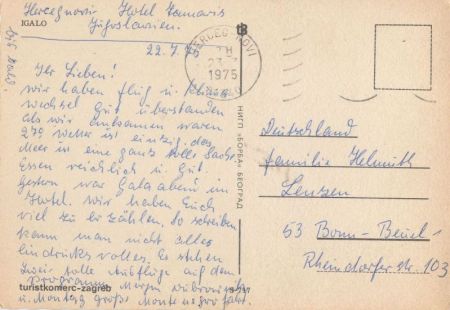 Hercegnovi Hotel Tamaris
IGALO
Jugoslavien.
22.7.75
HERCEG NOVI
1975
Ihr Lieben!
wir haben Flug u. Klima
wechsel Gut überstanden
als wir ankamen waren
27° wetter ist einzig. das
Meer ist eine ganz tolle Sache
Essen reichlich u. Gut.
Gestern war Gala abend im
Hotel. wir haben Euch
viel zu erzählen. So schreiben
kann man nicht alles
Eindrucks volles. Es stehen
Zwei tolle Ausflüge auf dem
Programm Morgen Dubrovnik
u. Montag große Montenegro fahrt.
turistkomerc-zagreb
НИГП «БОРБА» БЕОГРАД
Deutschland
Familie Helmuth
Lenzen
53 Bonn-Beuel-
Rheindorfer Str. 103